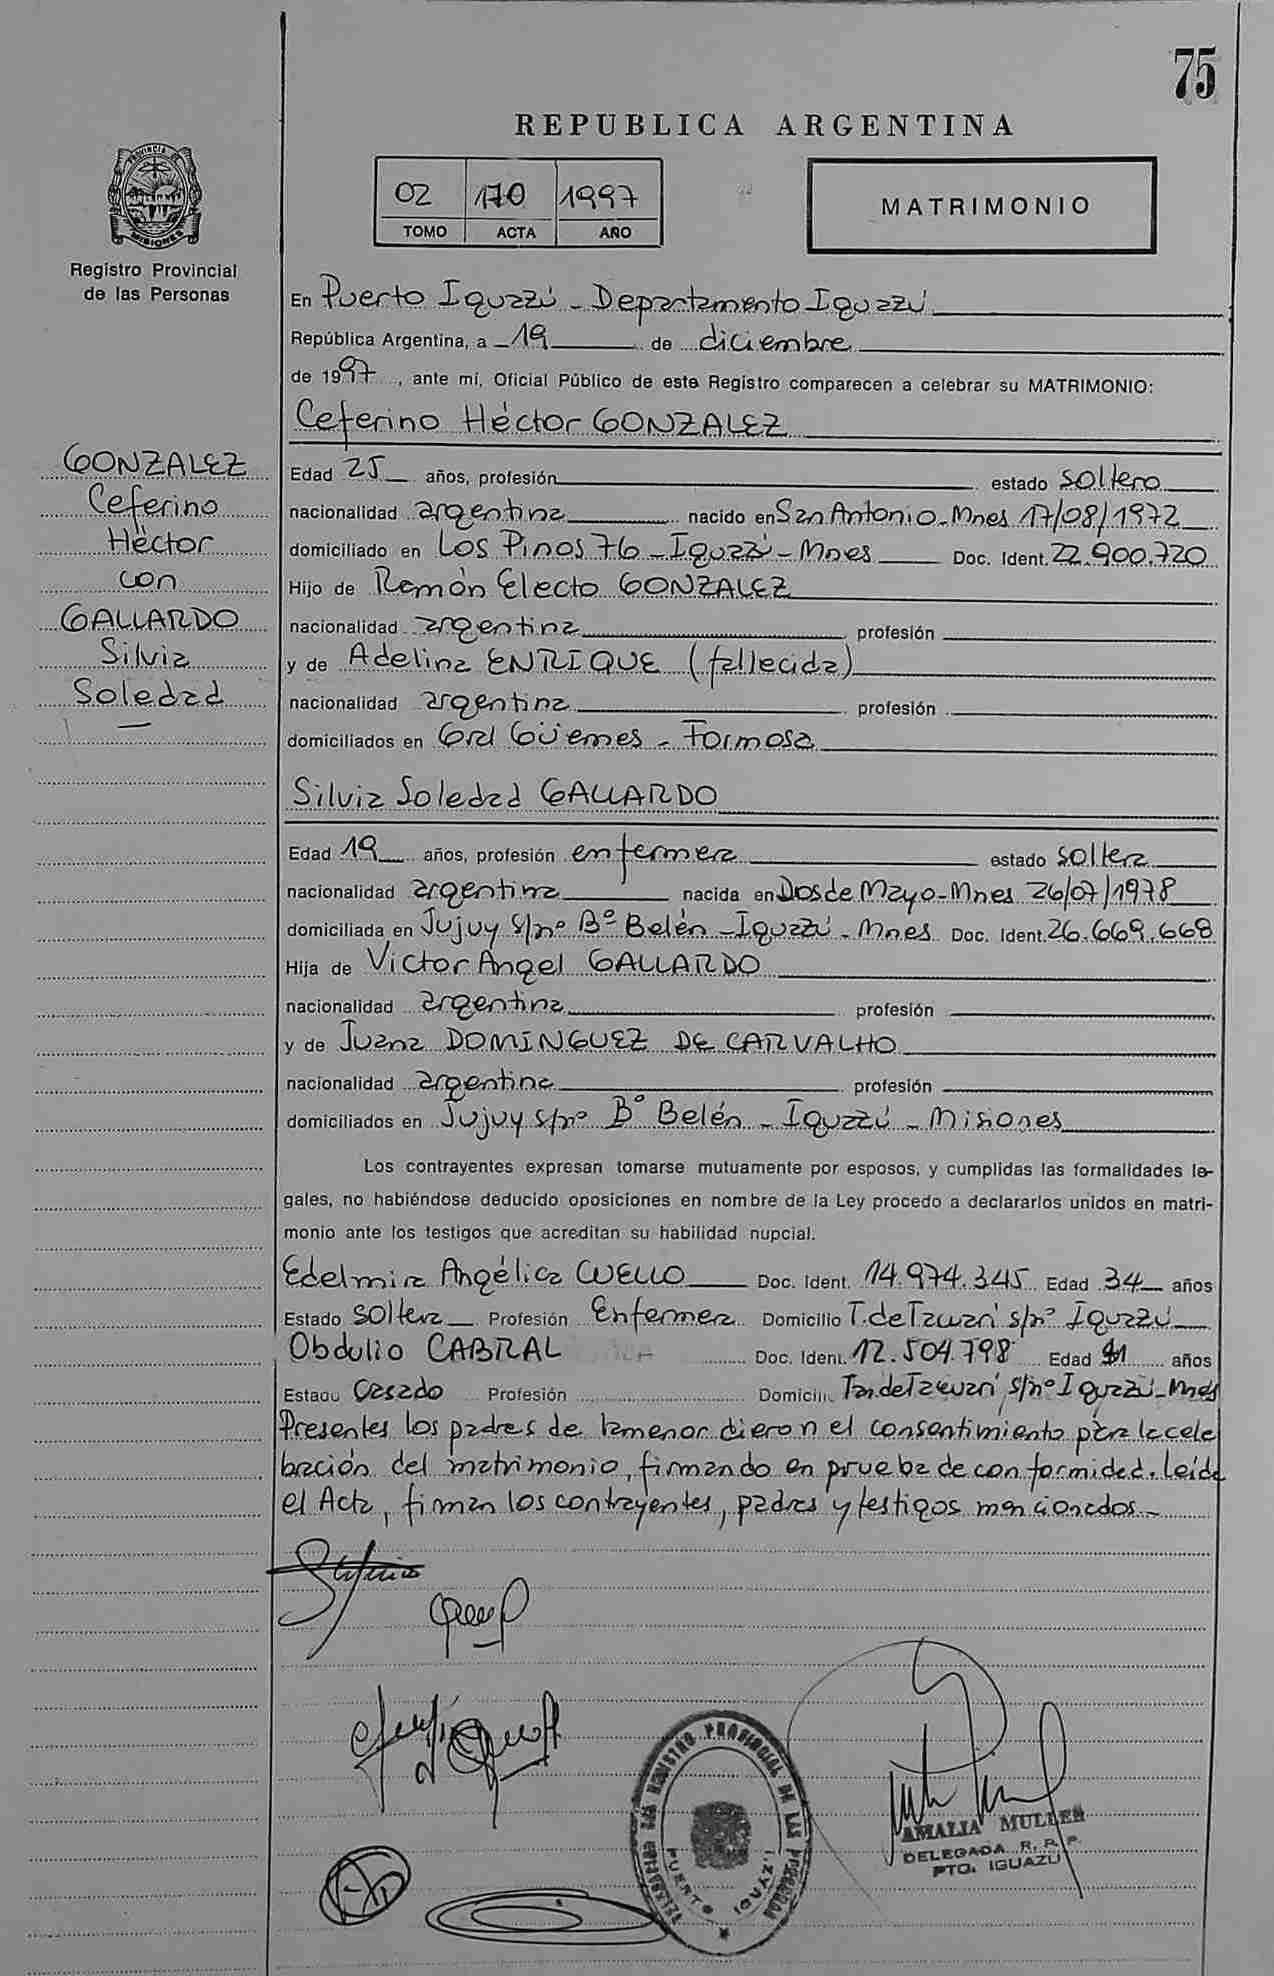 75
REPUBLICA ARGENTINA
02 170 1997
TOMO ACTA AÑO
MATRIMONIO
PROVINCIA DE
MISIONES
Registro Provincial
de las Personas
En Puerto Iguazú - Departamento Iguazú
República Argentina, a 19 de diciembre
de 1997, ante mí, Oficial Público de este Registro comparecen a celebrar su MATRIMONIO:
Ceferino Héctor GONZALEZ
GONZALEZ
Ceferino
Héctor
con
GALLARDO
Silvia
Soledad
Edad 25 años, profesión estado soltero
nacionalidad argentina nacido en San Antonio - Mnes 17/08/1972
domiciliado en Los Pinos 76 - Iguazú - Mnes Doc. Ident. 22.900.720
Hijo de Ramón Electo GONZALEZ
nacionalidad argentina profesión
y de Adelina ENRIQUE (fallecida)
nacionalidad argentina profesión
domiciliados en Gral Güemes - Formosa
Silvia Soledad GALLARDO
Edad 19 años, profesión enfermera estado soltera
nacionalidad argentina nacida en Dos de Mayo - Mnes 26/07/1978
domiciliada en Jujuy s/nº Bº Belén - Iguazú - Mnes Doc. Ident. 26.669.668
Hija de Victor Angel GALLARDO
nacionalidad argentina profesión
y de Juana DOMINGUEZ DE CARVALHO
nacionalidad argentina profesión
domiciliados en Jujuy s/nº Bº Belén - Iguazú - Misiones
Los contrayentes expresan tomarse mutuamente por esposos, y cumplidas las formalidades le-
gales, no habiéndose deducido oposiciones en nombre de la Ley procedo a declararlos unidos en matri-
monio ante los testigos que acreditan su habilidad nupcial.
Edelmira Angélica CUELLO Doc. Ident. 14.974.345 Edad 34 años
Estado soltera Profesión Enfermera Domicilio T. de Tacuarí s/nº Iguazú
Obdulio CABRAL Doc. Ident. 12.504.798 Edad 41 años
Estado Casado Profesión Domicilio Tam. de Tacuarí s/nº Iguazú - Mnes
Presentes los padres de la menor dieron el consentimiento para la cele
bración del matrimonio, firmando en prueba de conformidad. Leída
el Acta, firman los contrayentes, padres y testigos mencionados -
REGISTRO PROVINCIAL DE LAS PERSONAS
PUERTO IGUAZU
AMALIA MULLER
DELEGADA R. P. P.
PTO. IGUAZU